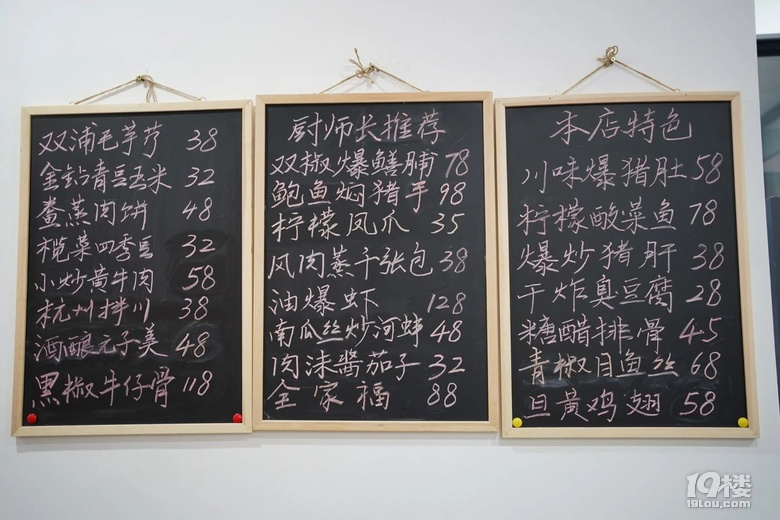 双浦毛芋艿 38
金钻青豆玉米 32
鲞蒸肉饼 48
榄菜四季豆 32
小炒黄牛肉 58
杭州拌川 38
酒酿元子美 48
黑椒牛仔骨 118
厨师长推荐
双椒爆鳝脯 78
鲍鱼焖猪手 98
柠檬凤爪 35
风肉蒸千张包 38
油爆虾 128
南瓜丝炒河蚌 48
肉沫酱茄子 32
全家福 88
本店特色
川味爆猪肚 58
柠檬酸菜鱼 78
爆炒猪肝 38
干炸臭豆腐 28
糖醋排骨 45
青椒目鱼丝 68
旦黄鸡翅 58
19楼
19lou.com